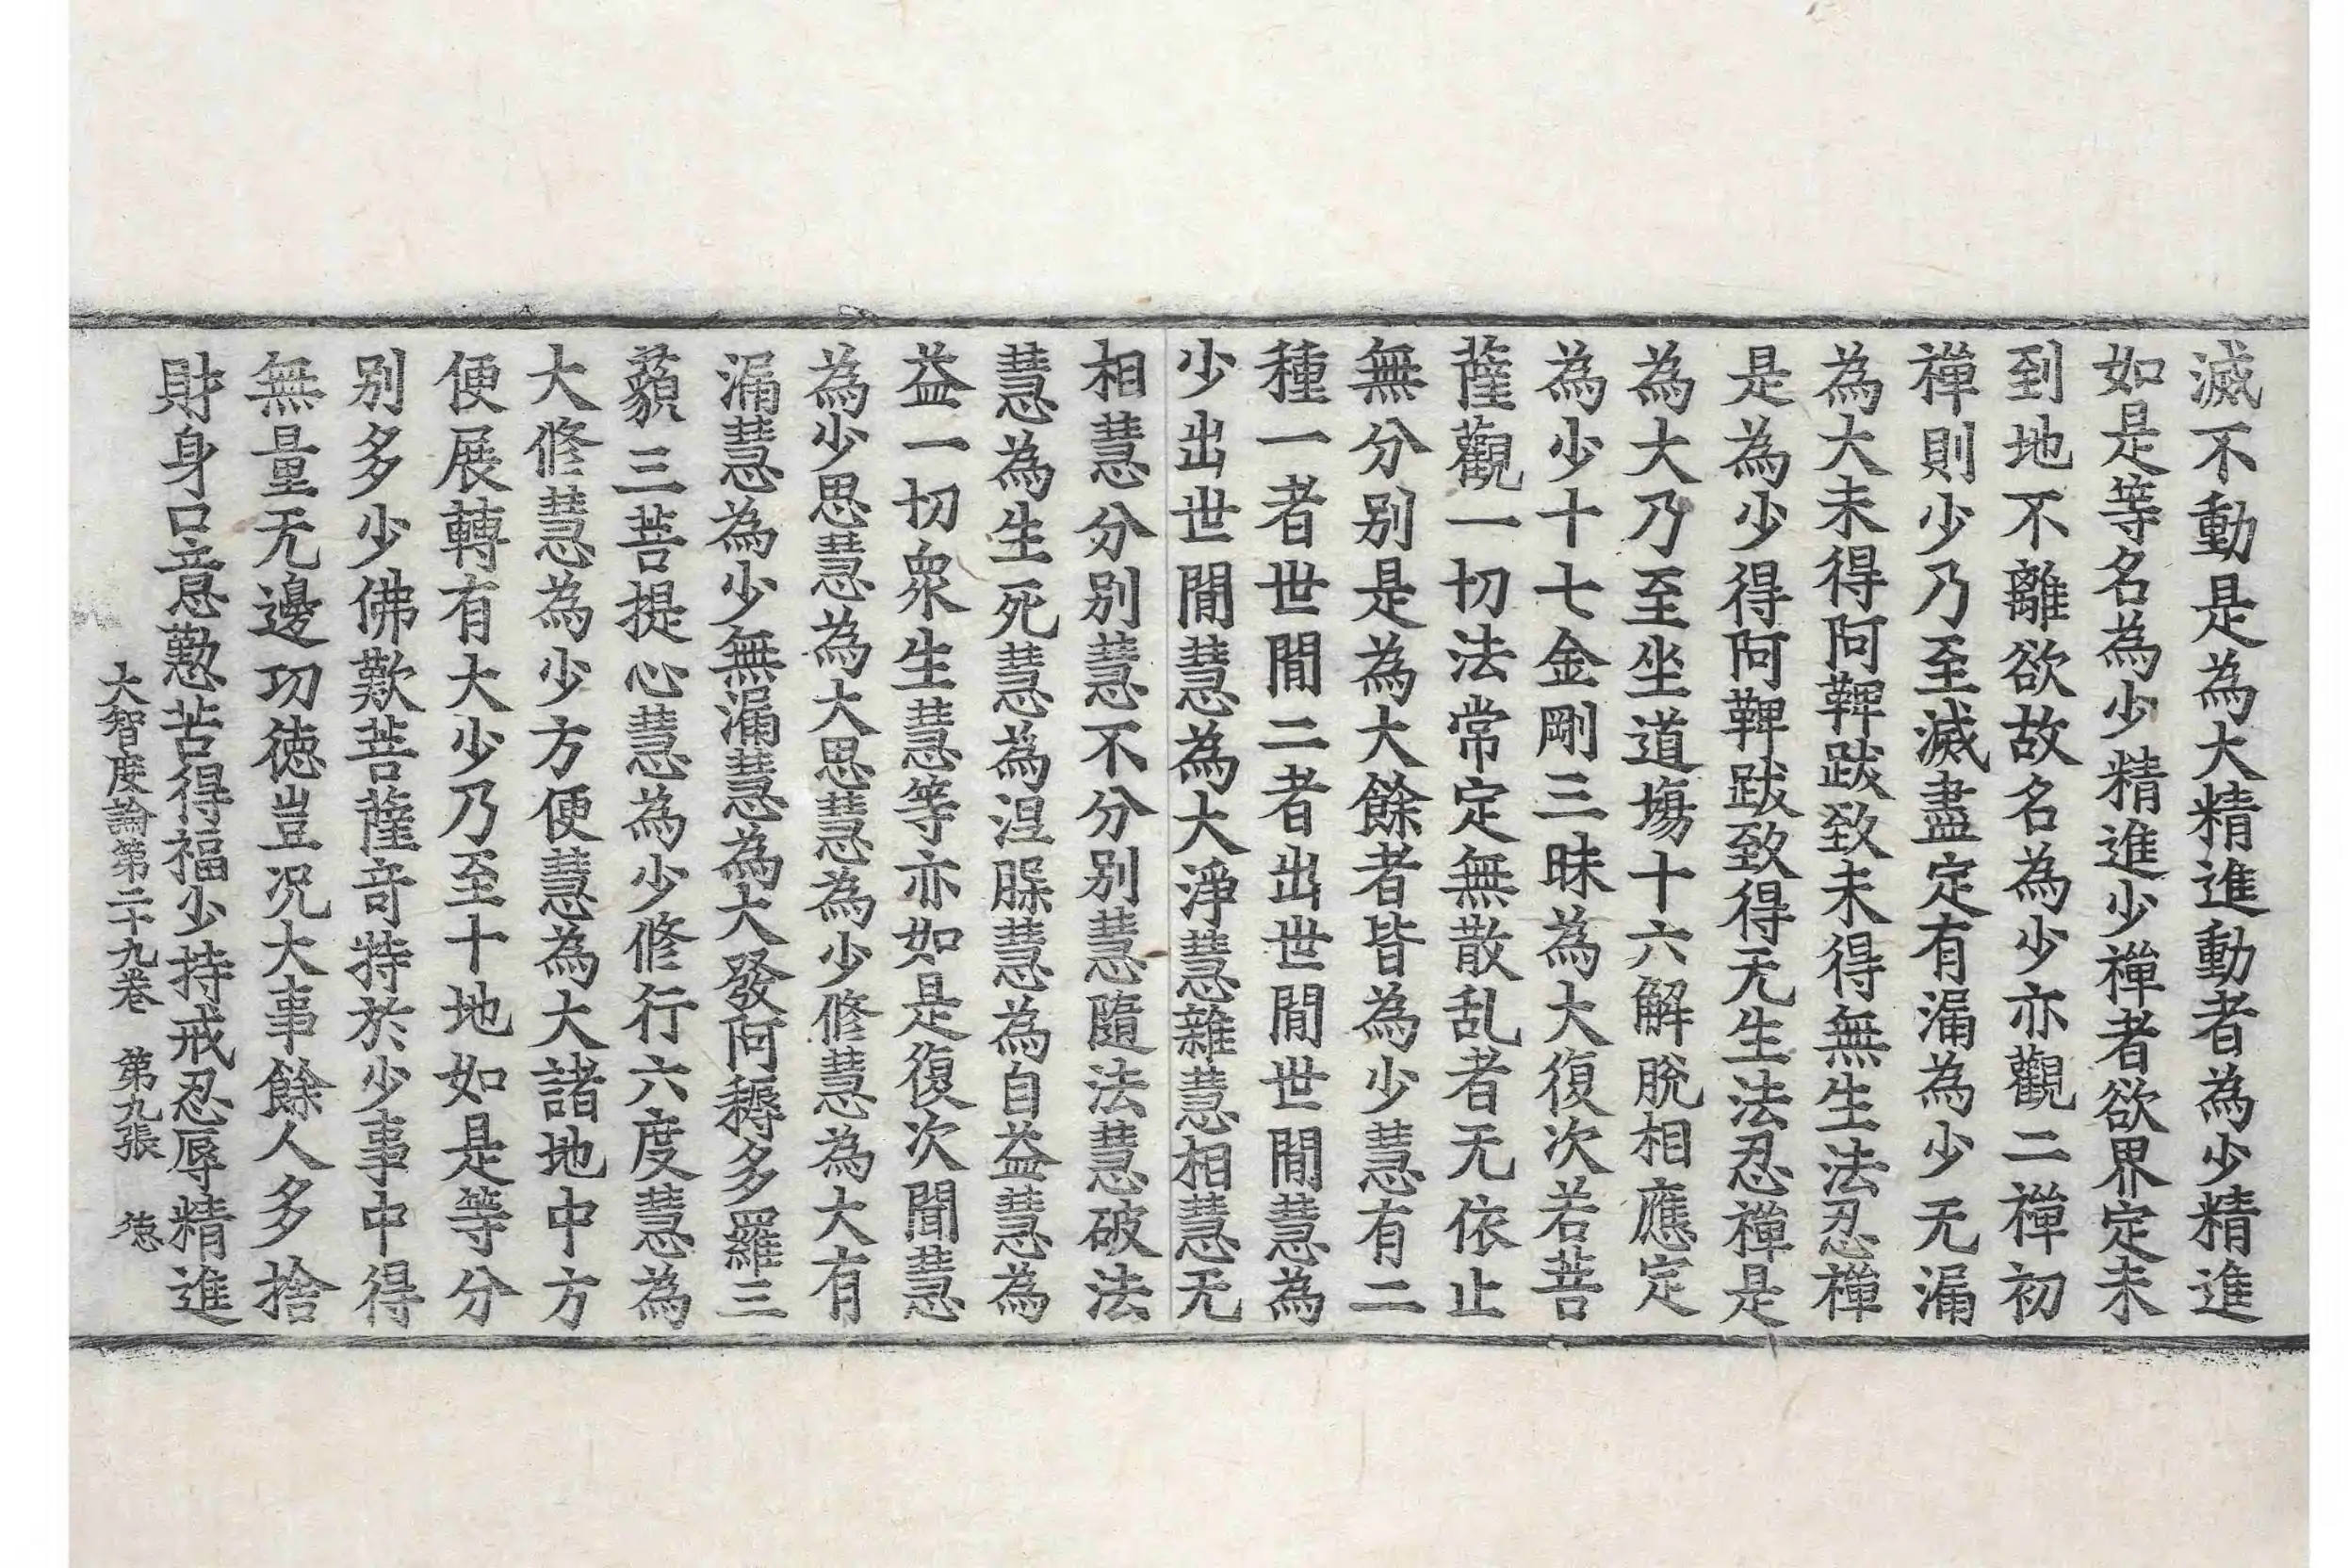 滅不動是為大精進動者為少精進
如是等名為少精進少禪者欲界定未
到地不離欲故名為少亦觀二禪初
禪則少乃至滅盡定有漏為少无漏
為大未得阿鞞跋致未得無生法忍禪
是為少得阿鞞跋致得无生法忍禪是
為大乃至坐道場十六解脫相應定
為少十七金剛三昧為大復次若菩
薩觀一切法常定無散乱者无依止
無分别是為大餘者皆為少慧有二
種一者世閒二者出世閒世閒慧為
少出世閒慧為大淨慧雜慧相慧无
相慧分别慧不分别慧隨法慧破法
慧為生死慧為涅槃慧為自益慧為
益一切衆生慧等亦如是復次聞慧
為少思慧為大思慧為少修慧為大有
漏慧為少無漏慧為大發阿耨多羅三
藐三菩提心慧為少修行六度慧為
大修慧為少方便慧為大諸地中方
便展轉有大少乃至十地如是等分
别多少佛歎菩薩竒持於少事中得
無量无邊功徳豈况大事餘人多捨
財身口意懃苦得福少持戒忍辱精進
大智度論第二十九卷 第九張 徳